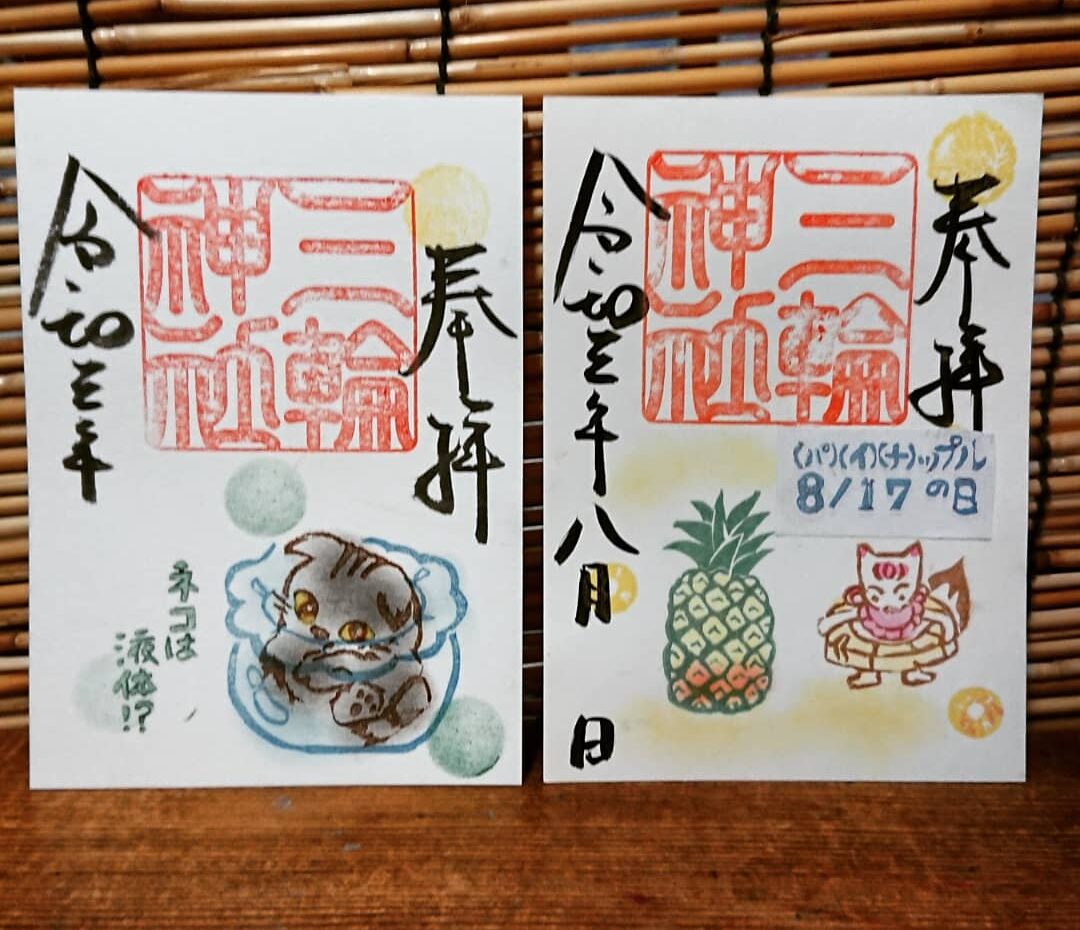 奉拝
三輪
神社
令和三年
ネコは
液体!?
奉拝
三輪
神社
(パ)(イ)(ナ)ップル
8/17の日
令和三年八月 日